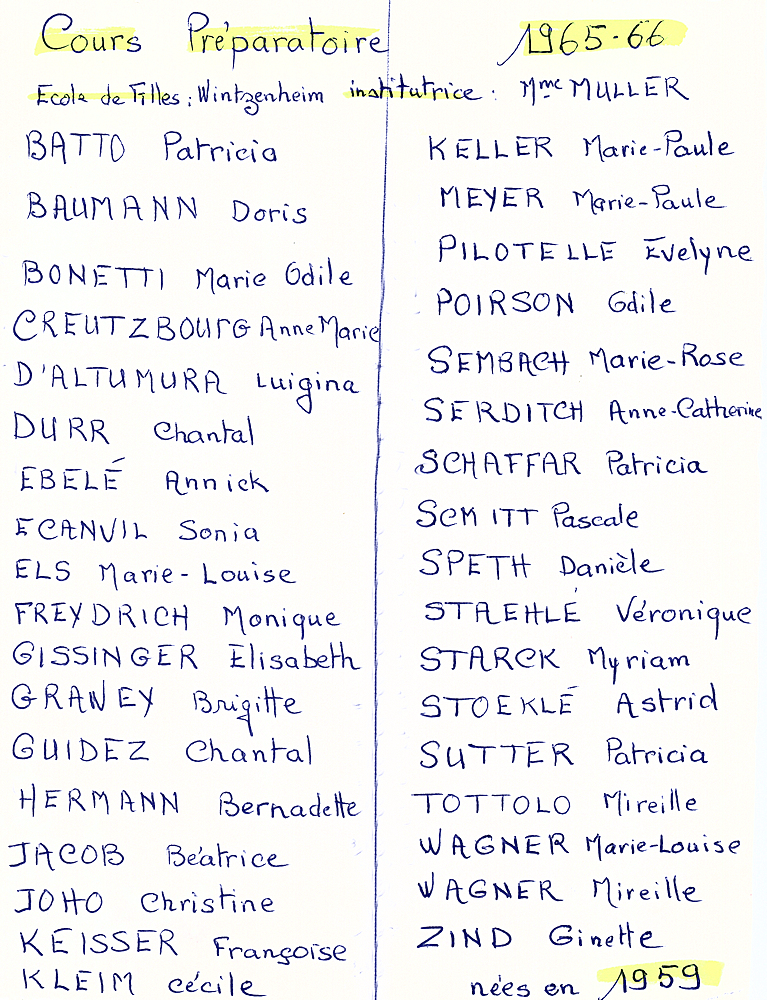 Cours Préparatoire 1965-66
Ecole de Filles : Wintzenheim institutrice : Mme MULLER
BATTO Patricia
BAUMANN Doris
BONETTI Marie Odile
CREUTZBOURG Anne Marie
D'ALTUMURA Luigina
DURR Chantal
EBELÉ Annick
ECANVIL Sonia
ELS Marie-Louise
FREYDRICH Monique
GISSINGER Elisabeth
GRANEY Brigitte
GUIDEZ Chantal
HERMANN Bernadette
JACOB Béatrice
JOHO Christine
KEISSER Françoise
KLEIM Cécile
KELLER Marie-Paule
MEYER Marie-Paule
PILOTELLE Evelyne
POIRSON Odile
SEMBACH Marie-Rose
SERDITCH Anne-Catherine
SCHAFFAR Patricia
SCMITT Pascale
SPETH Danièle
STAEHLÉ Véronique
STARCK Myriam
STOEKLÉ Astrid
SUTTER Patricia
TOTTOLO Mireille
WAGNER Marie-Louise
WAGNER Mireille
ZIND Ginette
nées en 1959